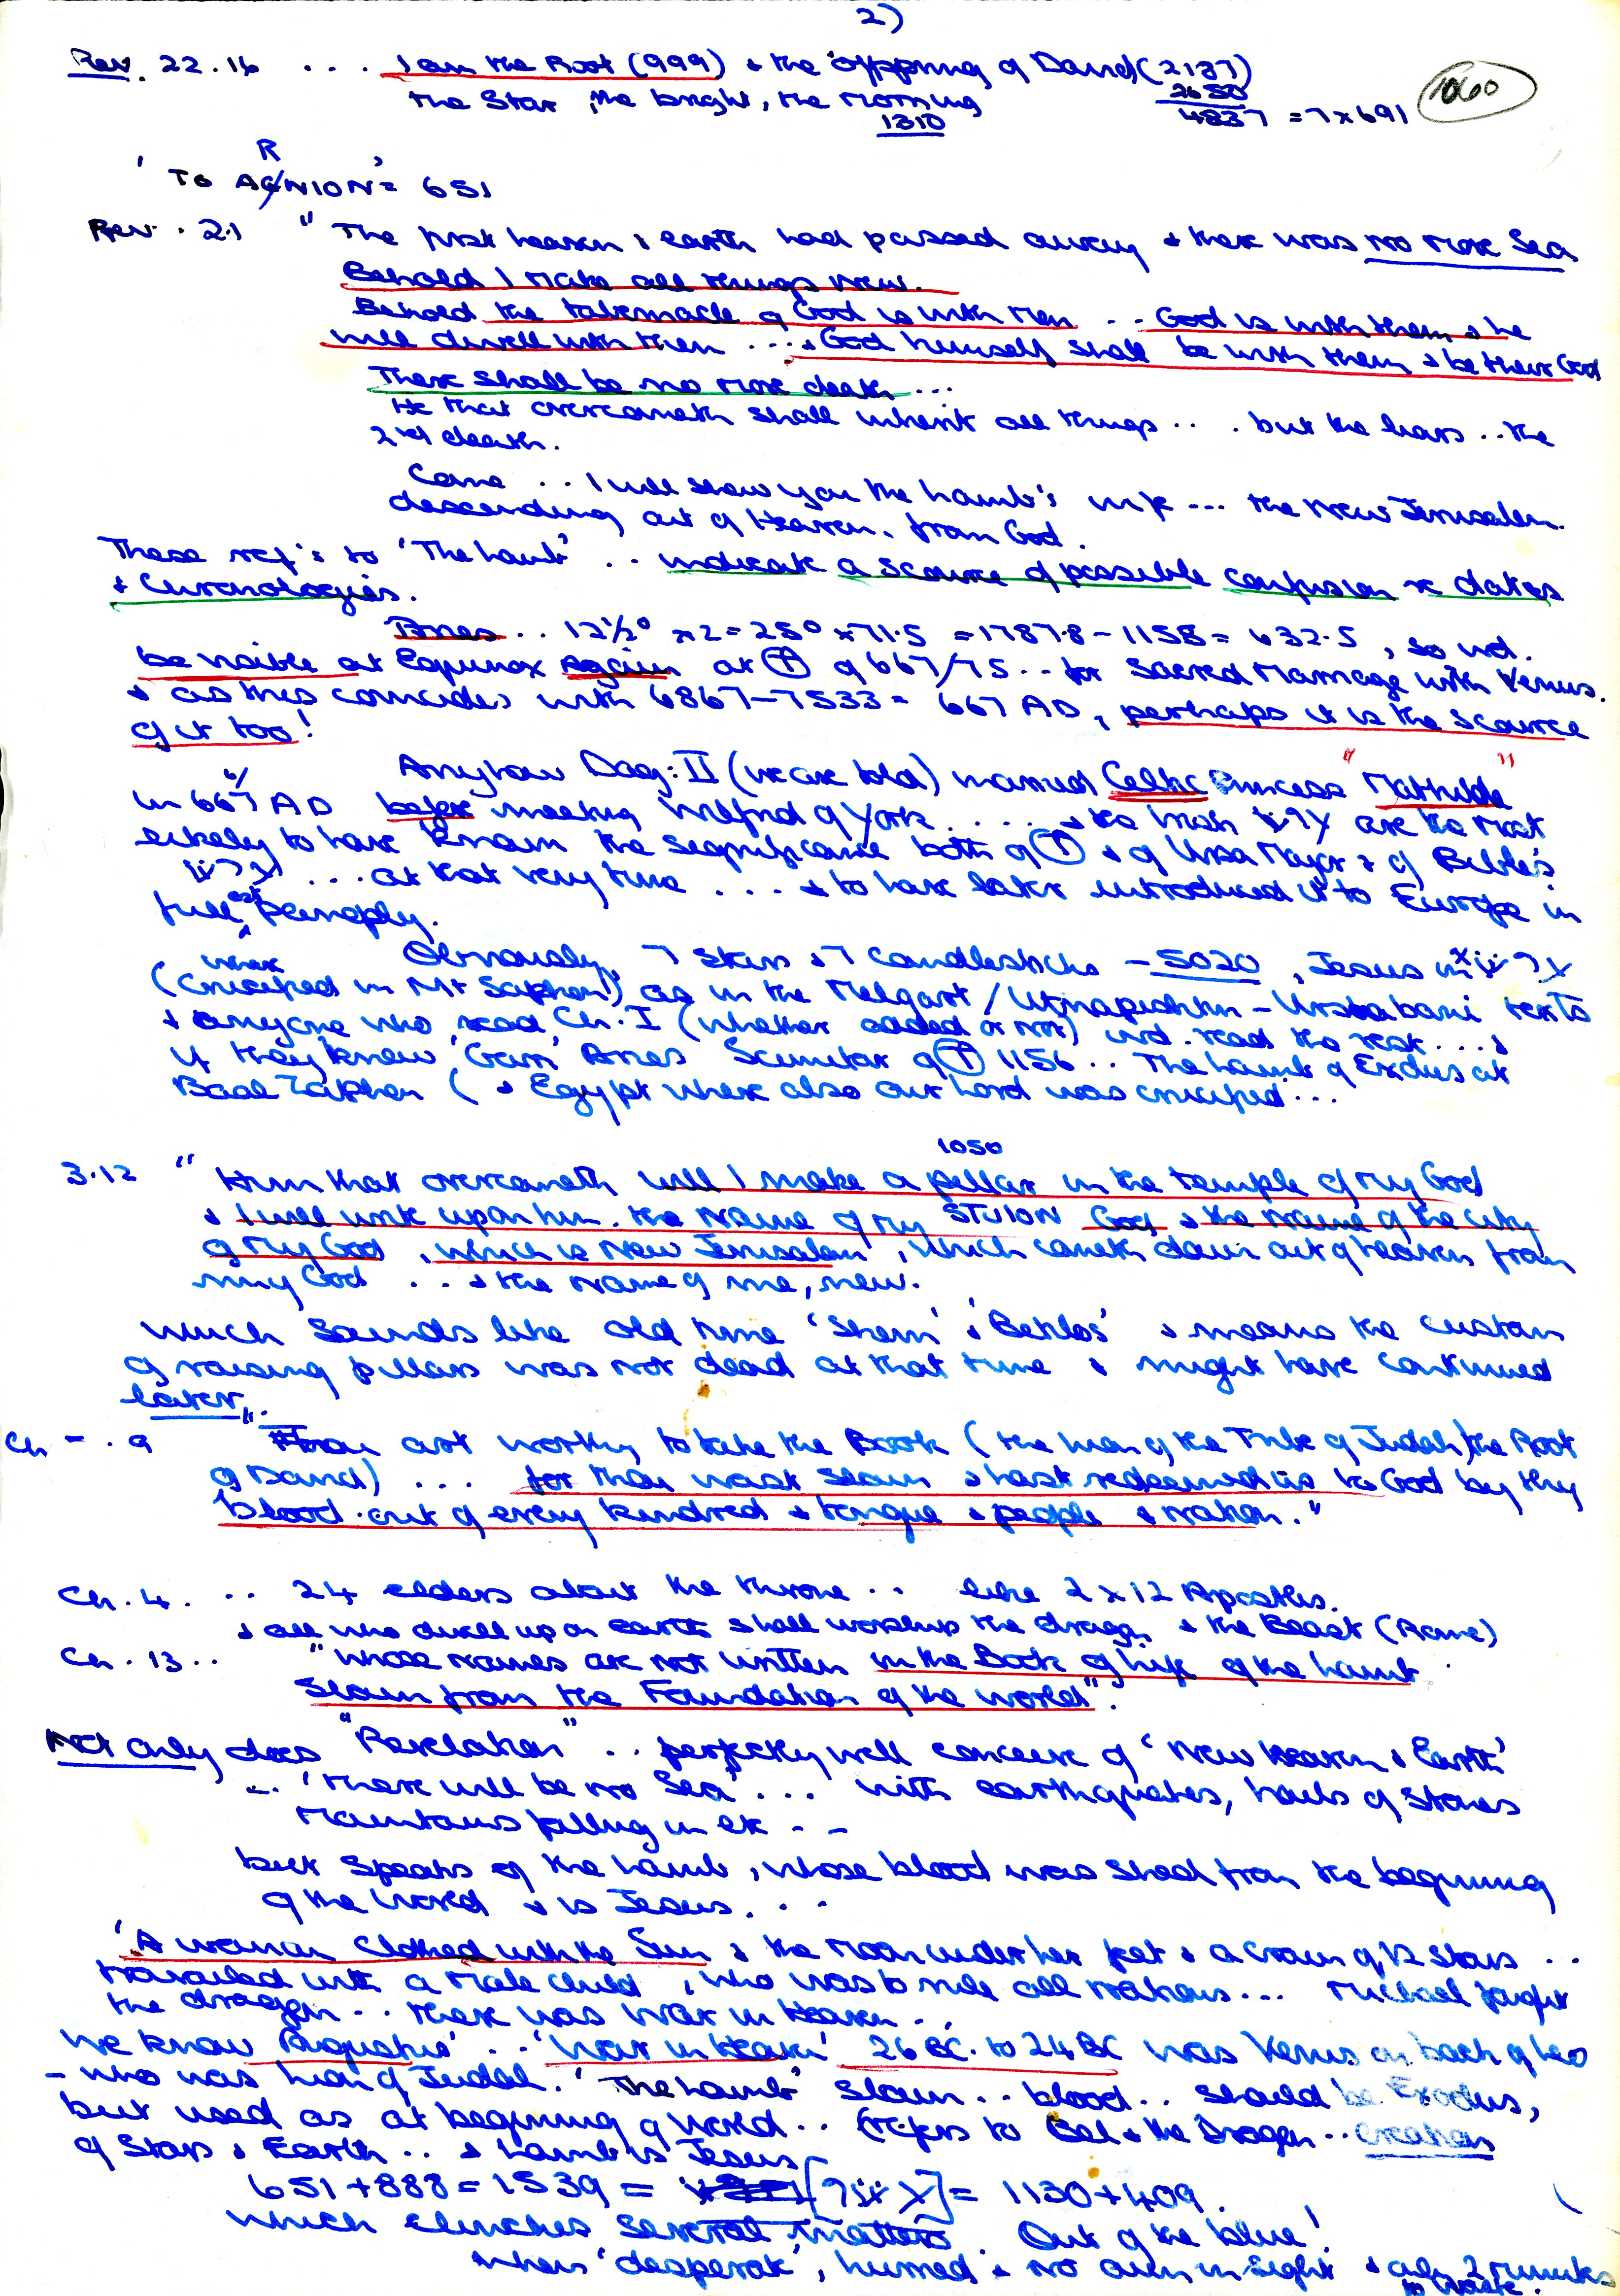 2)
Rev. 22.16 ... I am the Root (999) & the offspring of David (2187)
the Star, the bright, the Morning 2650
1310 4837 = 7x691
1060
R
'To AGNION' = 651
Rev. 21 " The first heaven & earth had passed away & there was no more Sea
Behold I make all things new.
Behold the tabernacle of God is with Men .. God is with them & he
will dwell with them .... & God himself shall be with them & be their God
There shall be no more death ...
He that overcometh shall inherit all things ... but the liars .. the
2nd death.
Come .. I will show you the Lamb's wife ... the New Jerusalem
descending out of Heaven, from God.
These ref's to 'The Lamb' .. indicate a source of possible confusion re dates
& Chronologies.
Aries .. 12½° x2 = 25° x 71.5 = 1787.8 - 1155 = 632.5, so wd.
be visible at Equinox again at of 667/75 .. for Sacred Marriage with Venus.
& as this coincides with 6867-7533 = 667 AD, perhaps it is the source
of it too!
Anyhow Dag: II (we are told) married Celtic Princess "Mathilde"
in 667 AD before meeting Wilfrid of York .... & the Irish are the most
likely to have known the significance both of & of Ursa Major & of Bible's
... at that very time .... & to have later introduced it to Europe in
full panoply.
Obviously, 7 Stars & 7 Candlesticks - 5020, Jesus in
where
(Crucified in Mt Saphon!) as in the Melqart / Utnapishtim - Urshabani texts
& anyone who read Ch. I (whether added or not) wd. read the rest ... &
if they knew Gam, Aries Scimitar of 1156 .. The Lamb of Exodus at
Baal Zaphon ( & Egypt where also our Lord was crucified ...
1050
3.12 " Him that overcometh will I make a pillar in the temple of my God
& I will write upon him the Name of my STULON God & the name of the city
of my God, which is New Jerusalem, which cometh down out of heaven from
my God ... & the name of me, new.
which sounds like old time 'Shem' & 'Betilos' & means the custom
of raising pillars was not dead at that time & might have continued
later.
Ch - . 9 "Thou art worthy to take the Book (the Lion of the Tribe of Judah) the Root
of David) ... for thou wast slain & hast redeemed us to God by thy
blood out of every kindred & tongue & people & nation."
Ch. 4. .. 24 elders about the throne .. like 2 x 12 Apostles.
& all who dwell upon earth shall worship the dragon & the Beast (Rome)
Ch. 13 .. "whose names are not written in the Book of Life of the Lamb
slain from the Foundation of the world".
Not only does "Revelation" .. perfectly well conceive of 'New Heaven & Earth'
... 'There will be no Sea' ... with earthquakes, hails of Stones
Mountains falling in etc ..
but speaks of the Lamb, whose blood was shed from the beginning
of the World & is Jesus ...
'A woman clothed with the Sun & the moon under her feet & a crown of 12 stars ..
travailed with a Male child, who was to rule all nations ... Michael fought
the dragon .. there was War in Heaven ..
We know Augustus' .. 'War in Heaven' 26 BC. to 24 BC was Venus on back of Leo
- who was Lion of Judah. 'The Lamb' slain .. blood .. should be Exodus,
but used as at beginning of World .. (refers to Bel & the Dragon .. Creation
of Stars & Earth .. & Lamb is Jesus
651 + 888 = 1539 = = 1130 + 409.
which clinches several matters. Out of the blue!
when 'desperate', hurried & no in sight & only 2 minutes
to